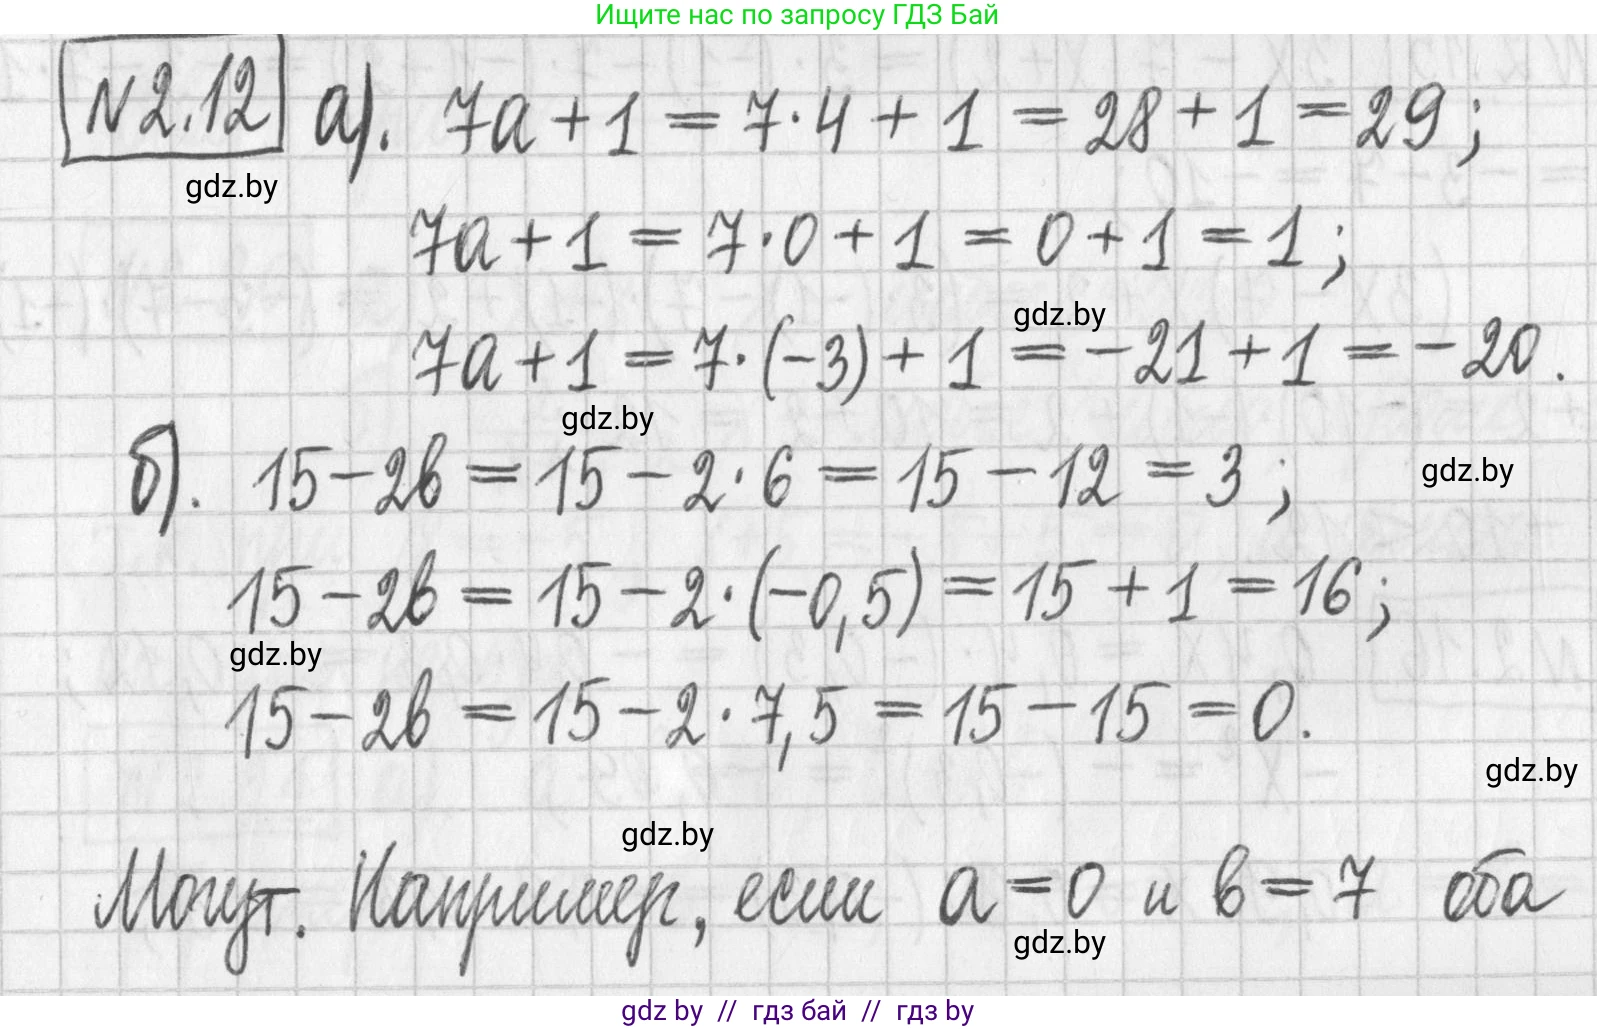 Ищите нас по запросу ГДЗ Бай
N2.12 а). 7a + 1 = 7·4 + 1 = 28 + 1 = 29;
gdz.by
7a + 1 = 7·0 + 1 = 0 + 1 = 1;
gdz.by
7a + 1 = 7·(-3) + 1 = -21 + 1 = -20.
gdz.by
б). 15 - 2в = 15 - 2·6 = 15 - 12 = 3;
gdz.by
15 - 2в = 15 - 2·(-0,5) = 15 + 1 = 16;
gdz.by
15 - 2в = 15 - 2·7,5 = 15 - 15 = 0.
gdz.by
gdz.by
Могут. Например, если a = 0 и в = 7 оба
gdz.by
gdz by // гдз бай // гдз by